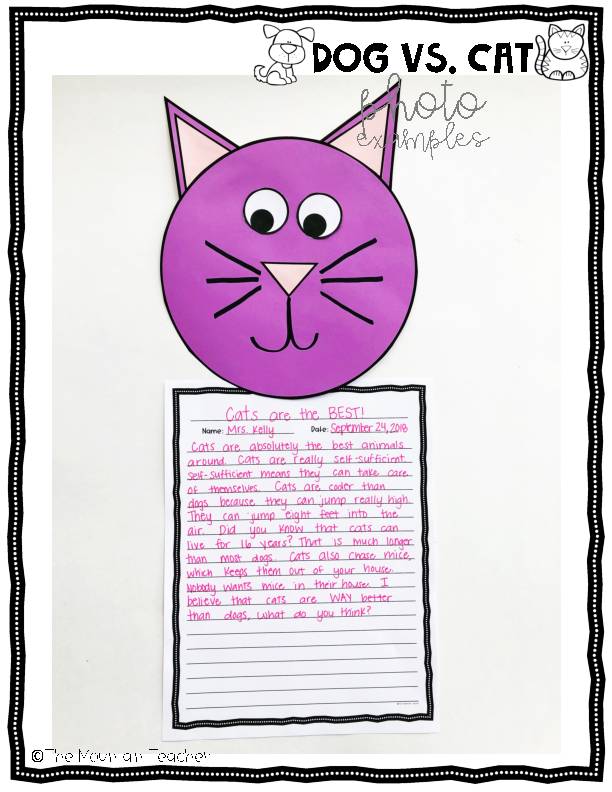 DOG VS. CAT
photo
examples
Cats are the BEST!
Name: Mrs. Kelly Date: September 24, 2018
Cats are absolutely the best animals
around. Cats are really self-sufficient
self-sufficient means they can take care
of themselves. Cats are cooler than
dogs because they can jump really high.
They can jump eight feet into the
air. Did you know that cats can
live for 16 years? That is much longer
than most dogs. Cats also chase mice,
which keeps them out of your house.
Nobody wants mice in their house. I
believe that cats are WAY better
than dogs, what do you think?
©The Mountain Teacher